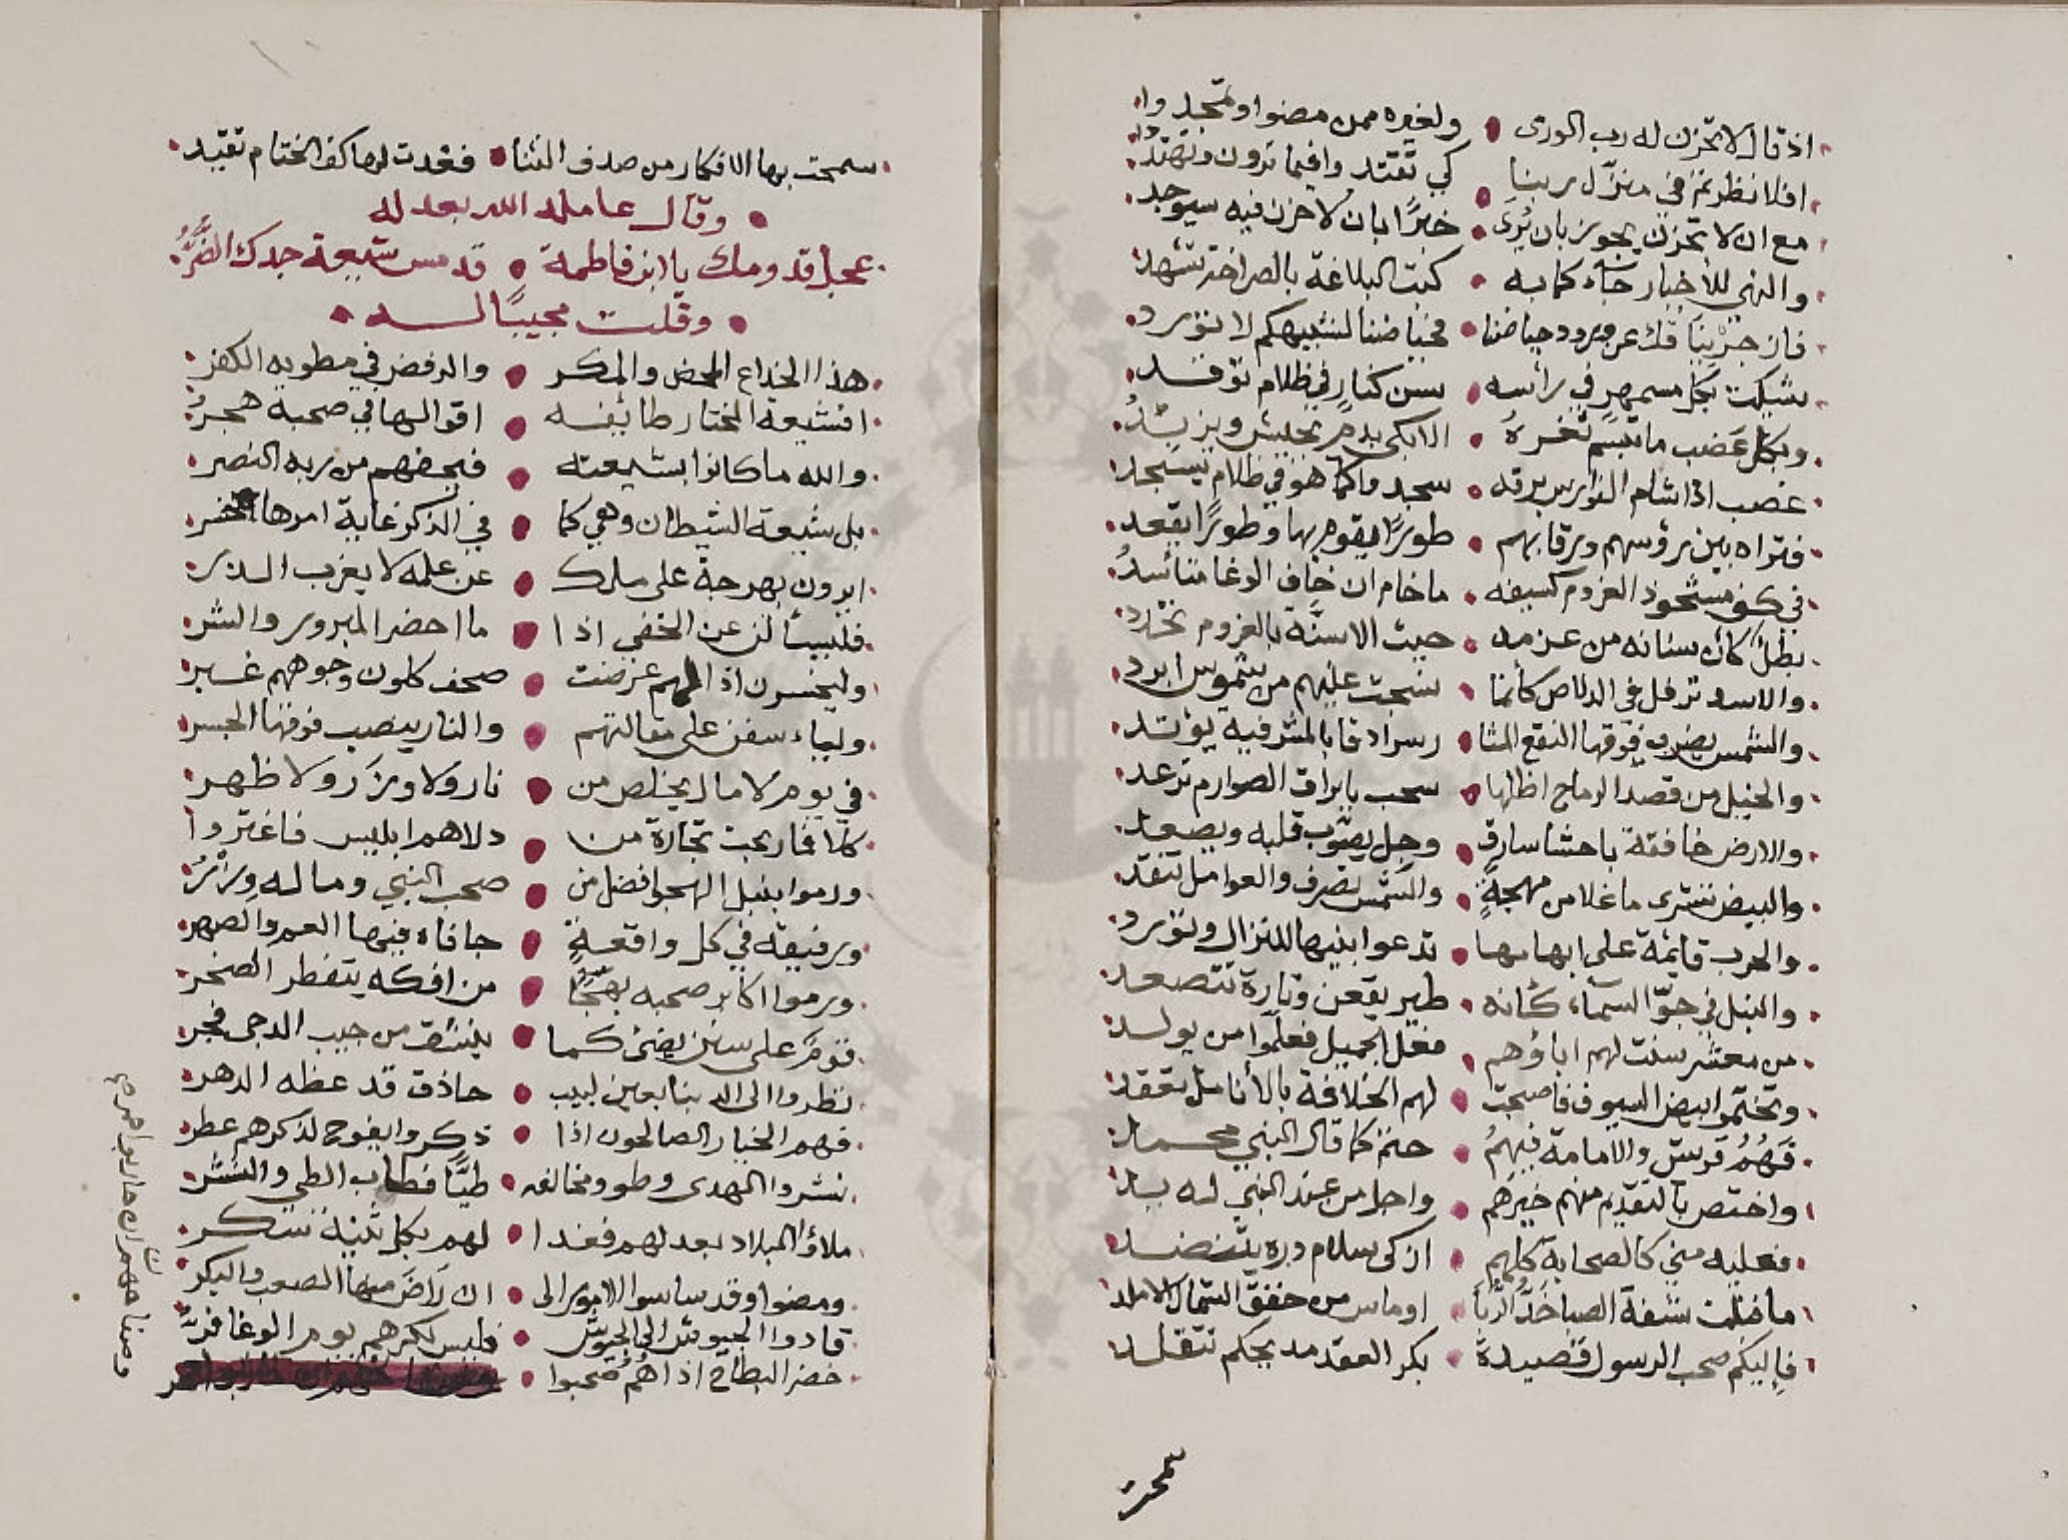 اذ قال لا تحزن له رب الورى • ولغيره ممن مضوا وتمجدوا
افلا نظرتم في منزل ربنا • كي تقتدوا فيما ترون وتهتدوا
مع ان لا تحزن يجوز بان يرى • خبرًا بان لا حزن فيه سيوجد
والنهي للأخبار جاء كما به • كتب البلاغة بالصراحة تشهد
فان جزينا عن ورود حياضنا • لا نورد
بكل في رأسه • سن كنار في ظلام توقد
وبكل عضب ما تبسم ثغره • الا بكى بدم يجيش ويزبد
عضب اذا شام الفوارس برقه • سجدوا كما هو في ظلام يسجد
فتراه بين رؤسهم ورقابهم • طورًا يقوم بها وطورًا يقعد
في كف مشحوذ العزوم كسيفه • ما خام ان خاف الوغا متأسد
بطل كأن سنانه من عزمه • حيث الاسنة بالعزوم تحدد
والاسد ترفل في الدلاص كأنما • نسجت عليهم من شموس ابرد
والشمس يضرب فوقها النقع المثا • ر سرادقا بالمشرفيه يوتد
والخيل من قصد الرماح اظلها • سحب بابراق الصوارم ترعد
والارض خافقة باحشا سارق • وجل يصوب قلبه ويصعد
والبيض تشترى ما غلا من مهجة • والشمس تصرف والعوامل تنقد
والحرب قايمة على ابهامها • تدعوا بنيها للنزال وتورد
والنبل في جو السماء كأنه • طير يقعن وتارة تتصعد
من معشر سنت لهم اباؤهم • فعل الجميل فعلموا من يولد
وتختموا بيض السيوف فاصبحت • لهم الخلافة بالأنامل تعقد
فهم قريش والامامة فيهم • حتم كما قال النبي محمد
واختص بالتقديم منهم خيرهم • واجل من عند النبي له يد
فعليه مني كالصحابة كلهم • ازكى سلام دره يتنضد
ما قبلت شفة الصبا خد الربا • او ماس من خفق الشمال الاملد
فاليكم صحب الرسول قصيدة • بكر العقد مديحكم تتقلد
سمحت
سمحت بها الافكار من صدف الثنا • فغدت لها كف الختام تقيد
• وقال عامله الله بعدله
عجل قدومك يا ابن فاطمة • قد مس شيعة جدك الضر
• وقلت مجيبًا له •
هذا الخداع المحض والمكر • والرفض في مطويه الكفر
افشيعة المختار طايفه • اقوالها في صحبه هجر
والله ما كانوا بشيعته • فبحضهم من ربه النصر
بل شيعة الشيطان وهي كما • في الذكر غاية امرها الخسر
ايرون بهرجة على ملك • عن علمه لا يعزب الذر
فليسألن عن الخفي اذا • ما احضر المبرور والشر
وليخسرن اذا لهم عرضت • صحف كلون وجوههم غبر
وليا سفن على مقالتهم • والنار ينصب فوقها الجسر
في يوم لا مال يخلص من • نار ولا وزر ولا ظهر
كلا فما ربحت تجارة من • دلاهم ابليس فاغتروا
ورموا بنبل الهجو افضل من • صحب النبي وما له وزر
ورفيقه في كل واقعة • جافاه فيها العم والصهر
ورموا اكابر صحبه بهجًا • من افكه يتفطر الصخر
قوم على سنن يضئ كما • ينشق من جيب الدجى فجر
نظروا الى الدنيا بعين لبيب • حاذق قد عظه الدهر
فهم الخيار الصالحون اذا • ذكروا يفوح لذكرهم عطر
نشروا الهدى وطووا مخالفه • طيًا فطاب الطي والنشر
ملاؤا البلاد بعدلهم فغدا • لهم بكل ثنية شكر
ومضوا وقد ساسوا الامور الى • ان راض منها الصعب والبكر
قادوا الجيوش الى الجيوش • فليس لكرهم يوم الوغا فر
خضر البطاح اذا هم صحبوا •